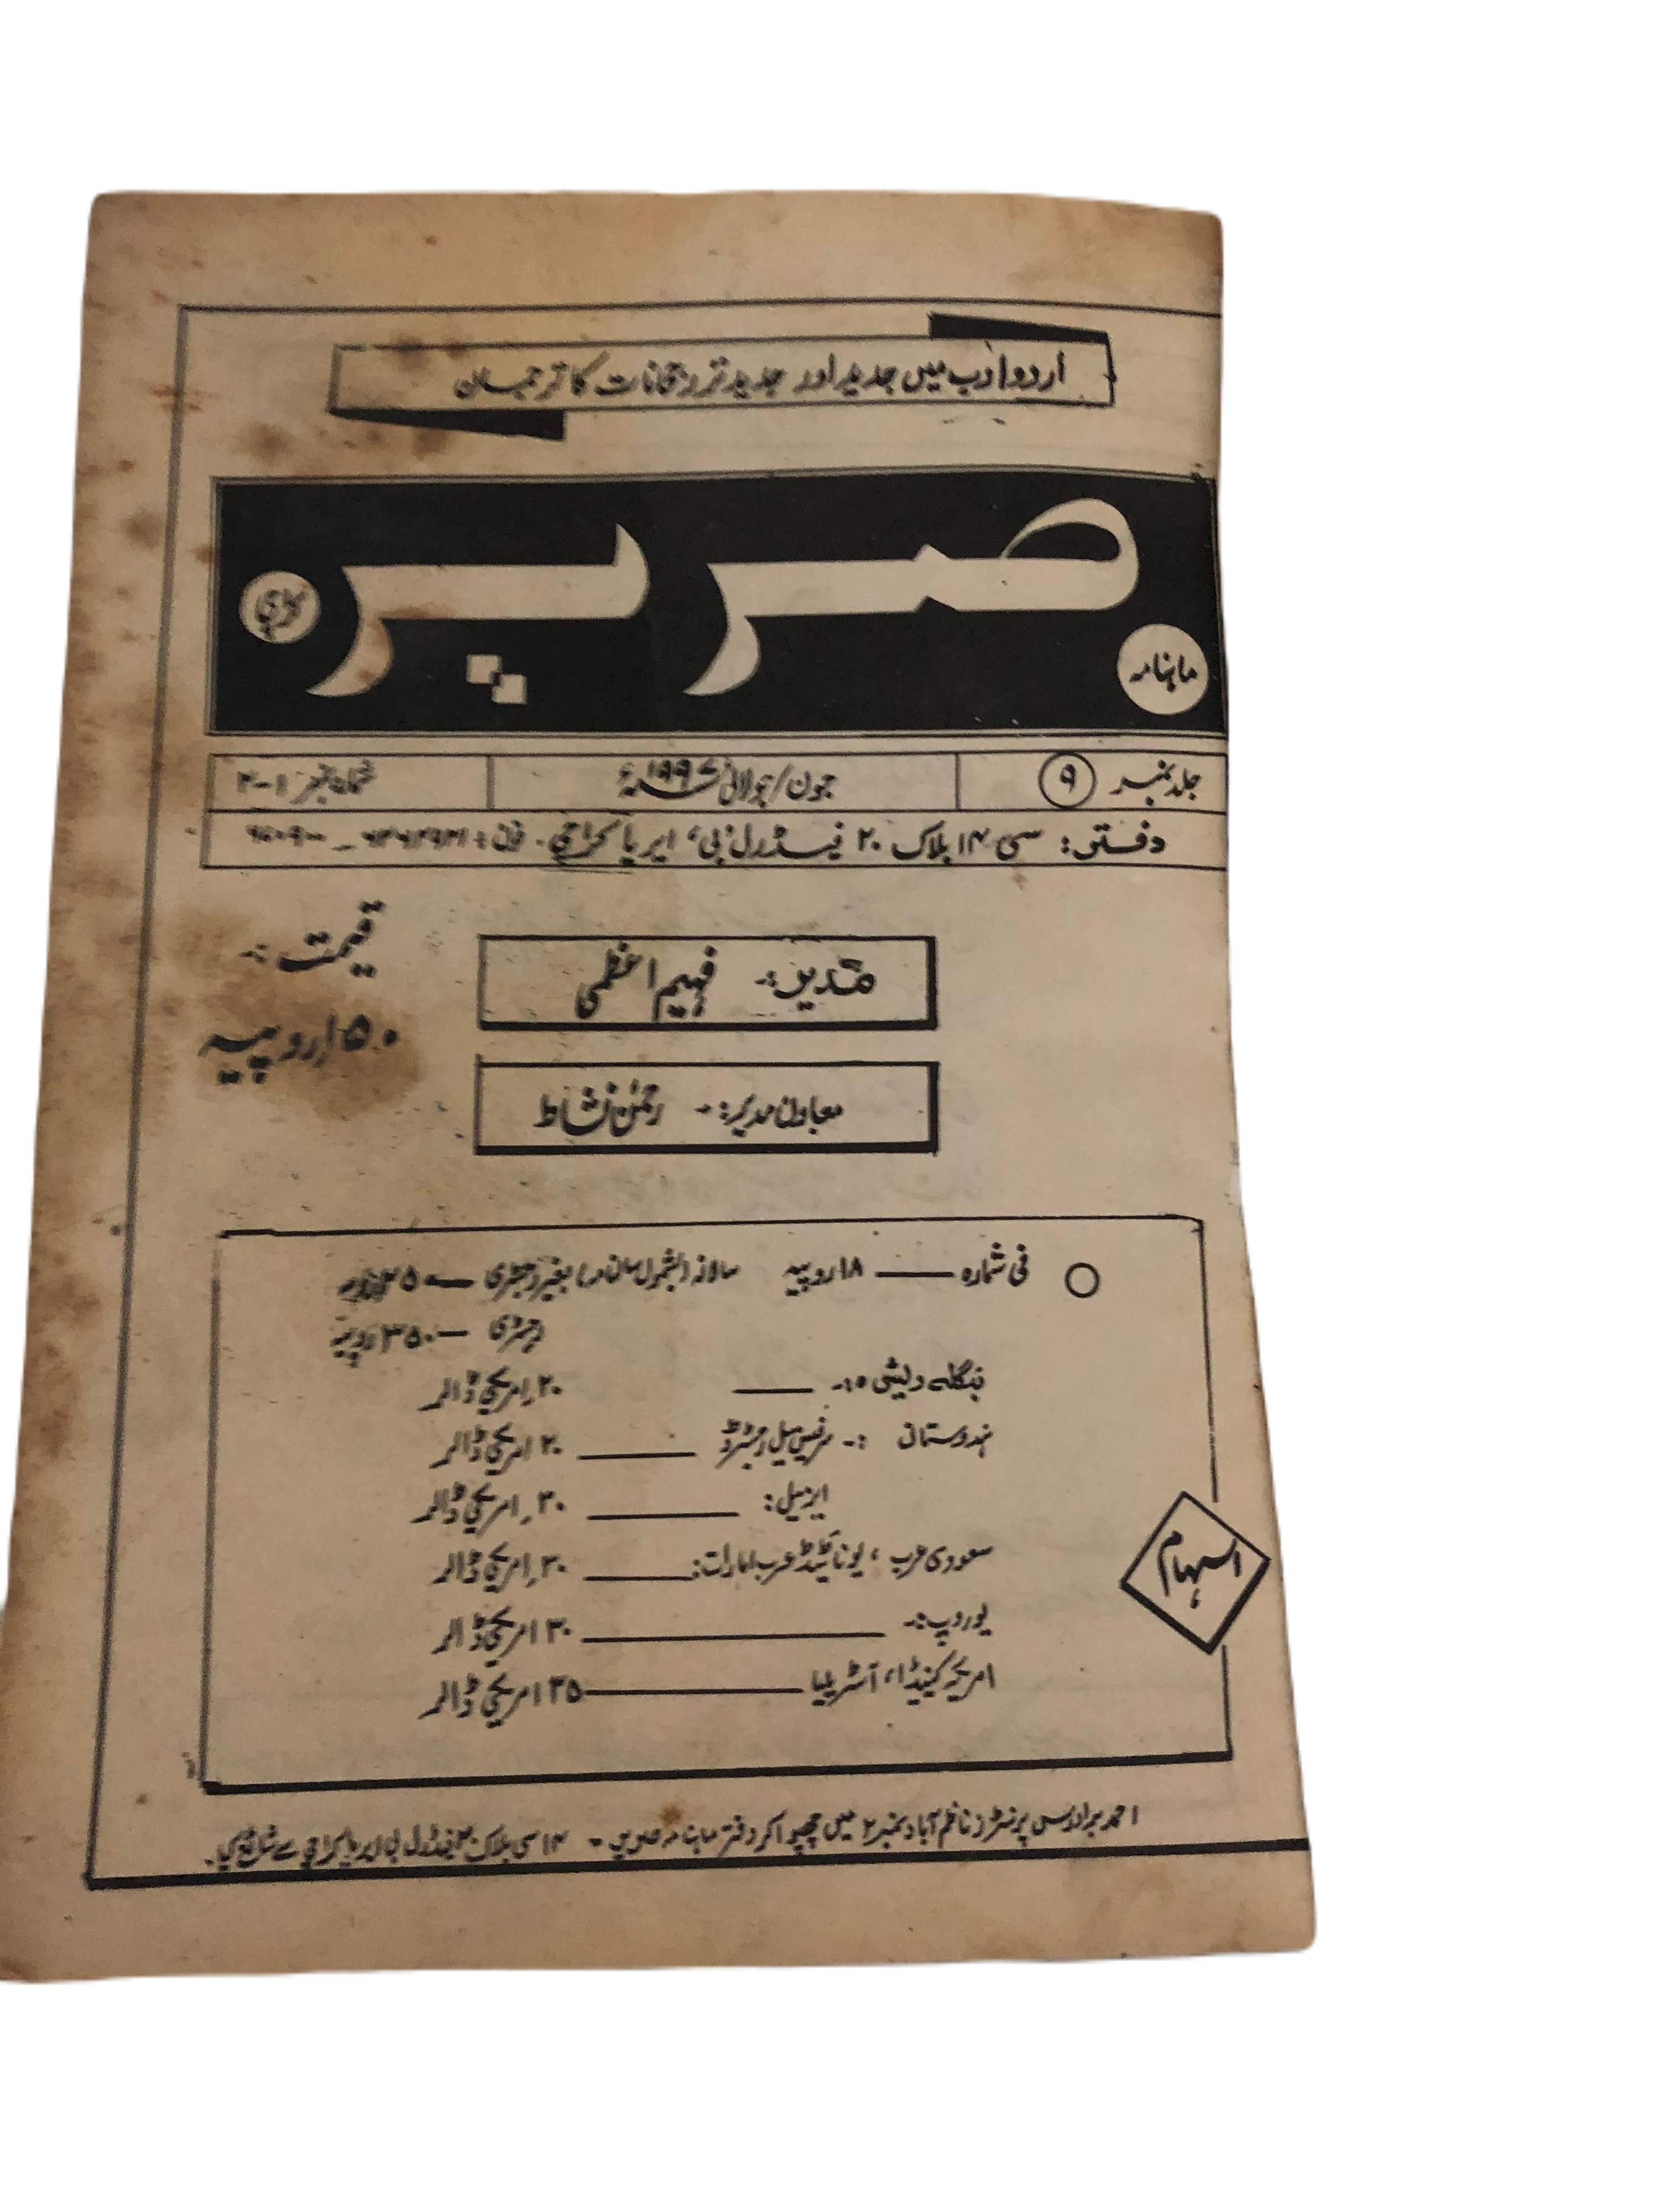 اردو ادب میں جدید اور جدید تر رجحانات کا ترجمان
ماہنامہ صریر کراچی
جلد نمبر ۹ جون/جولائی ۱۹۹۷ء شمارہ نمبر ۱-۲
دفتر: سی ۱۴ بلاک ۲۰ فیڈرل 'بی' ایریا کراچی۔ فون:
قیمت :-
۱۵۰ روپیہ
مدیر :- فہیم اعظمی
معاون مدیر :- رحمٰن نشاط
فی شمارہ —— ۱۸ روپیہ سالانہ (بشمول سالنامہ) بغیر رجسٹری — ۲۵۰ روپیہ
رجسٹری — ۳۵۰ روپیہ
بنگلہ دیشی :- —— ۲۰ امریکی ڈالر
ہندوستانی :- سرفیس میل رجسٹرڈ —— ۲۰ امریکی ڈالر
ایرمیل: —— ۳۰ امریکی ڈالر
سعودی عرب، یونائیٹڈ عرب امارات: —— ۳۰ امریکی ڈالر
یوروپ :- —— ۳۰ امریکی ڈالر
امریکہ کینیڈا، آسٹریلیا —— ۳۵ امریکی ڈالر
اسہام
احمد برادرس پرنٹرز ناظم آباد نمبر ۲ میں چھپوا کر دفتر ماہنامہ صریر - ۱۴ سی بلاک ۲۰ فیڈرل بی ایریا کراچی سے شائع کی۔